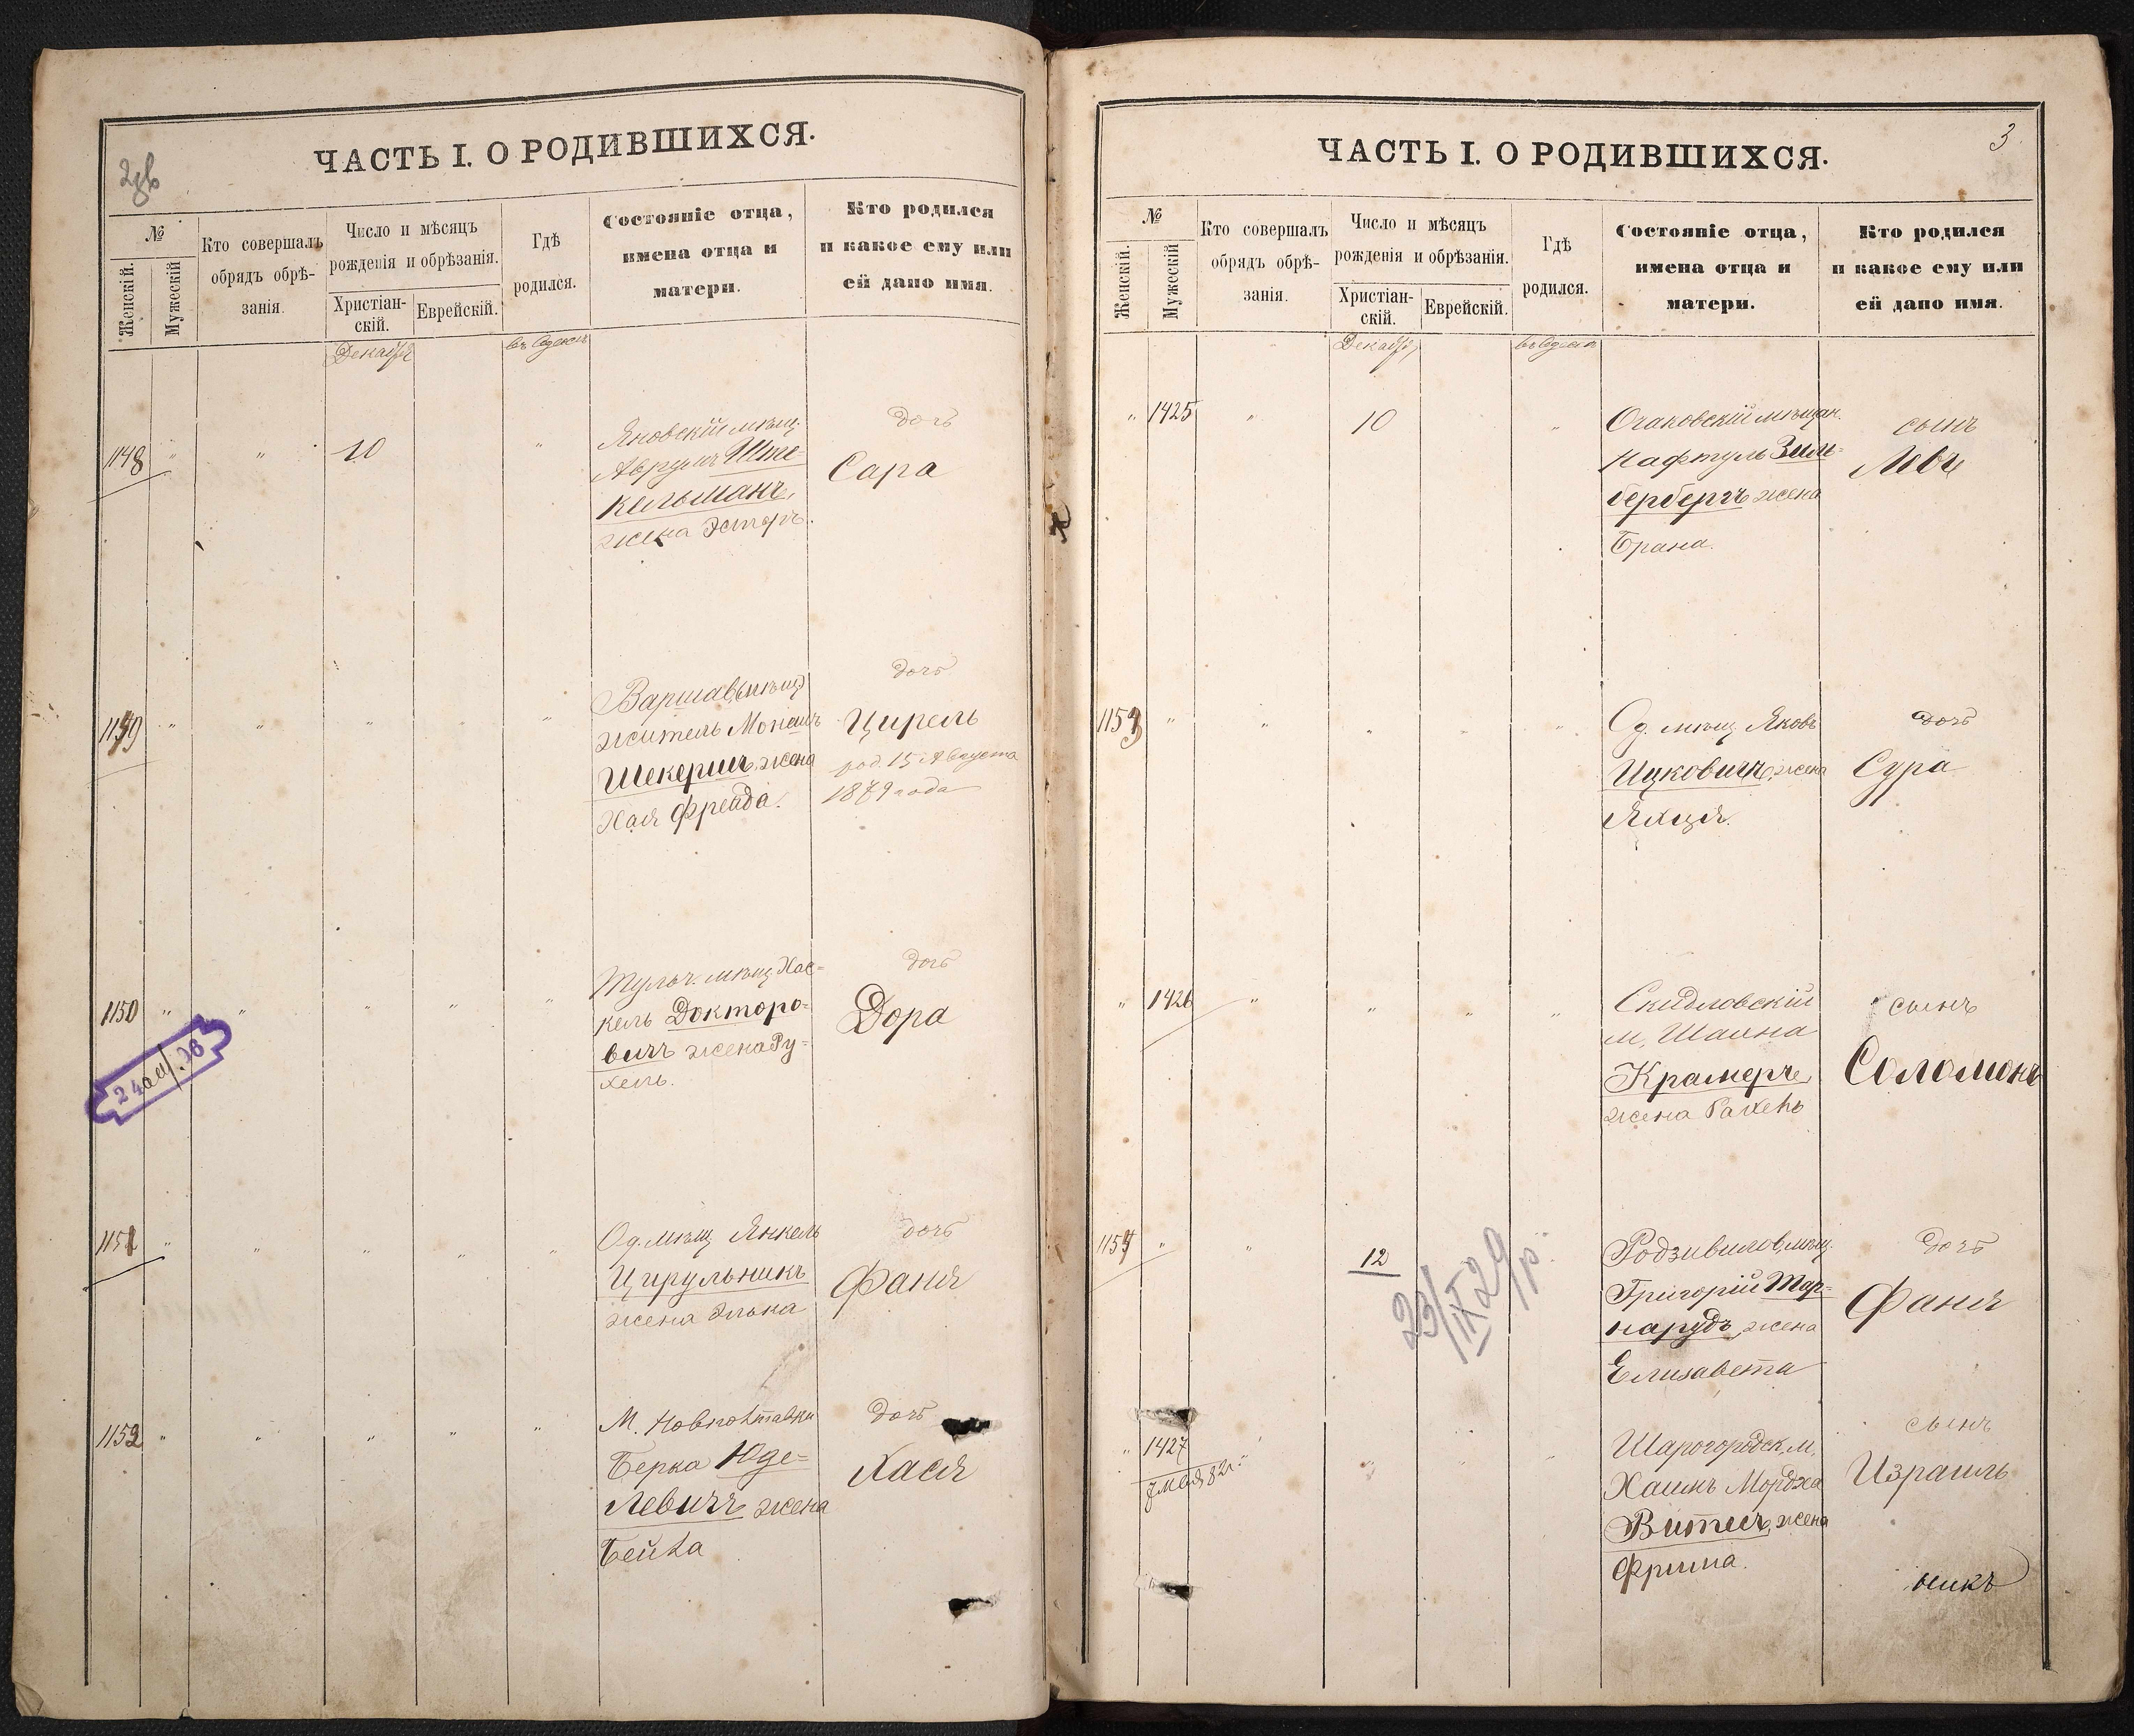 ЧАСТЬ I. О РОДИВШИХСЯ.
№
Женскій.
Мужескій
Кто совершалъ
обрядъ обрѣ-
занія.
Число и мѣсяцъ
рожденія и обрѣзанія.
Христіан-
скій.
Еврейскій.
Гдѣ
родился.
Состояніе отца,
имена отца и
матери.
Кто родился
и какое ему или
ей дано имя.
въ Одессѣ
1148 " " 10 "
Яновскій мѣщ.
Аврумъ Ште-
кельманъ,
жена Эстеръ.
дочь
Сара
1149 " " " "
Варшав. мѣщ.
житель
Шекеришъ, жена
Хая Фрейда.
дочь
Цирель
род. 15 Августа
1879 года
1150 " " " " "
Тульч. мѣщ. Хас=
кель Докторо=
вичъ жена Ру=
хель.
дочь
Дора
1151 " " " " "
Од. мѣщ Янкель
Цирульникъ
жена Элька
дочь
Фаня
1152 " " " " "
М. Новполтавки
Берка Юде=
левичъ жена
Бейла
дочь
Хася
3.
ЧАСТЬ I. О РОДИВШИХСЯ.
№
Женскій.
Мужескій
Кто совершалъ
обрядъ обрѣ-
занія.
Число и мѣсяцъ
рожденія и обрѣзанія.
Христіан-
скій.
Еврейскій.
Гдѣ
родился.
Состояніе отца,
имена отца и
матери.
Кто родился
и какое ему или
ей дано имя.
въ Одессѣ
" 1425 " 10 "
Очаковскій мѣщан.
Нафтуль Зиль-
бербергъ жена
Брана.
сынъ
Левъ
1153 " " " " "
Од. мѣщ Яковъ
Ицковичъ, жена
дочь
Сура
" 1426 " " " "
Скидловскій
м. Шашна
Крамеръ,
жена Рахель
сынъ
Соломонъ
1154 " " 12
23/IX 29 р.
Родзивилов. мѣщ.
Григорій Тар-
нарудъ, жена
Елизавета
дочь
Фаня
" 1427 " " " "
Шарогородск. м.
Хаимъ Мордха
Витисъ, жена
Фрима.
сынъ
Израиль
никъ